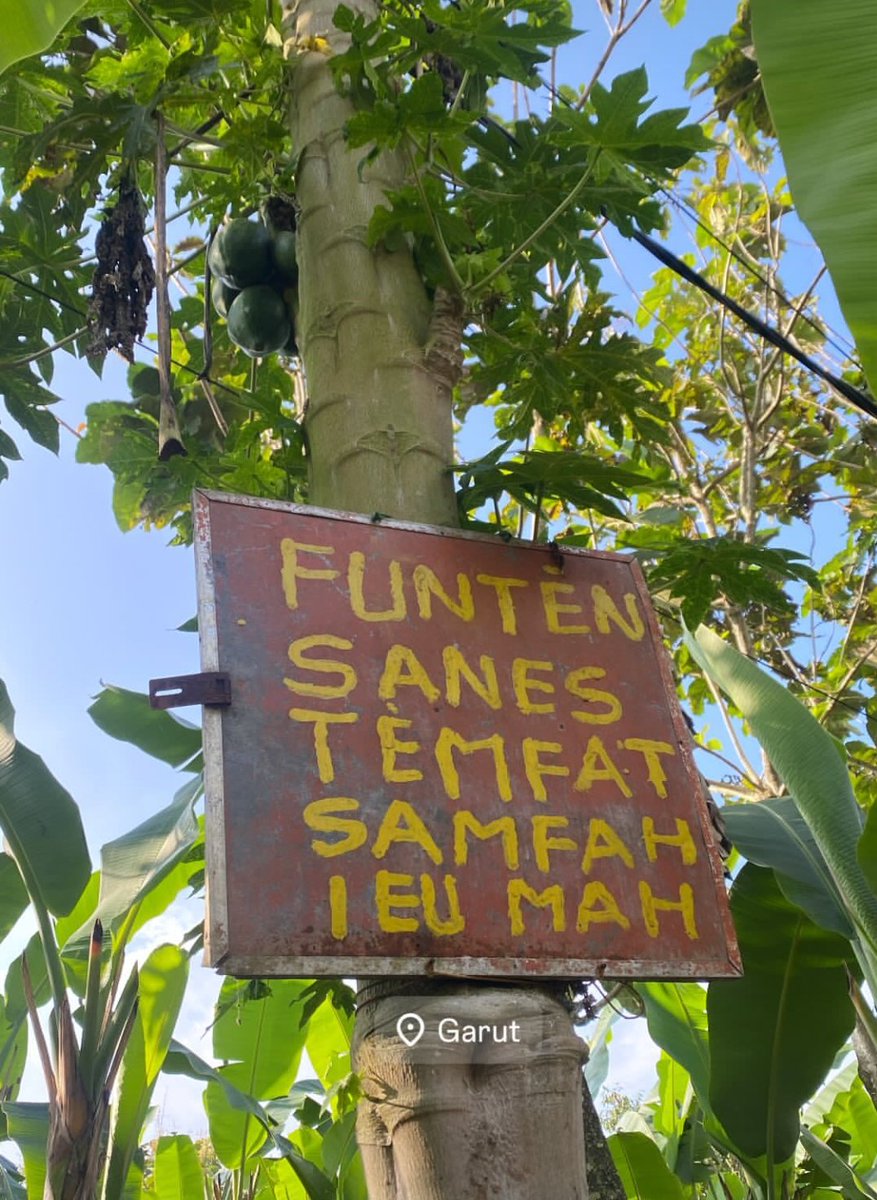 FUNTĖN
SANES
TĖMFAT
SAMFAH
IEU MAH
Garut